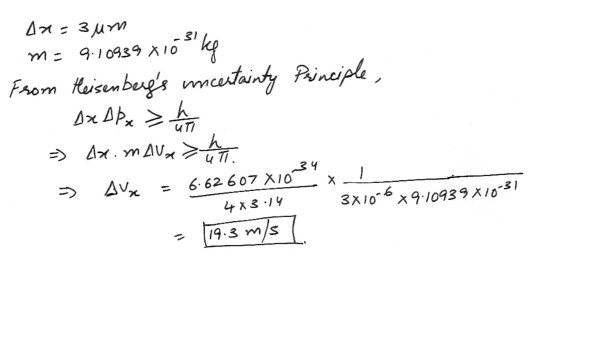 Δx = 3 μm
m = 9.10939 × 10⁻³¹ kg
From Heisenberg's uncertainty Principle,
Δx Δpₓ ≥ h/4π
⇒ Δx . m ΔVₓ ≥ h/4π.
⇒ ΔVₓ = 6.62607 × 10⁻³⁴ / 4 × 3.14 × 1 / 3 × 10⁻⁶ × 9.10939 × 10⁻³¹
= 19.3 m/s.